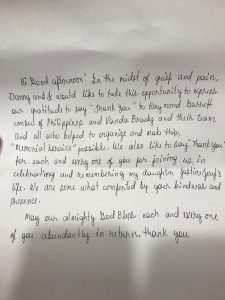 Hi Good afternoon! In the midst of grief and pain,
Danny and I would like to take this opportunity to express
our gratitude to say "Thank you" to Raymond Barrett
consul of Philippines and Vanda Brady and their team
and all who helped to organize and make this,
"Memorial service" possible. We also like to say "Thank you"
for each and every one of you for joining us in
celebrating and remembering my daughter Justine Joy's
life. We are some what comforted by your kindness and
presence.
May our almighty God Bless each and every one
of you abundantly in return. thank you